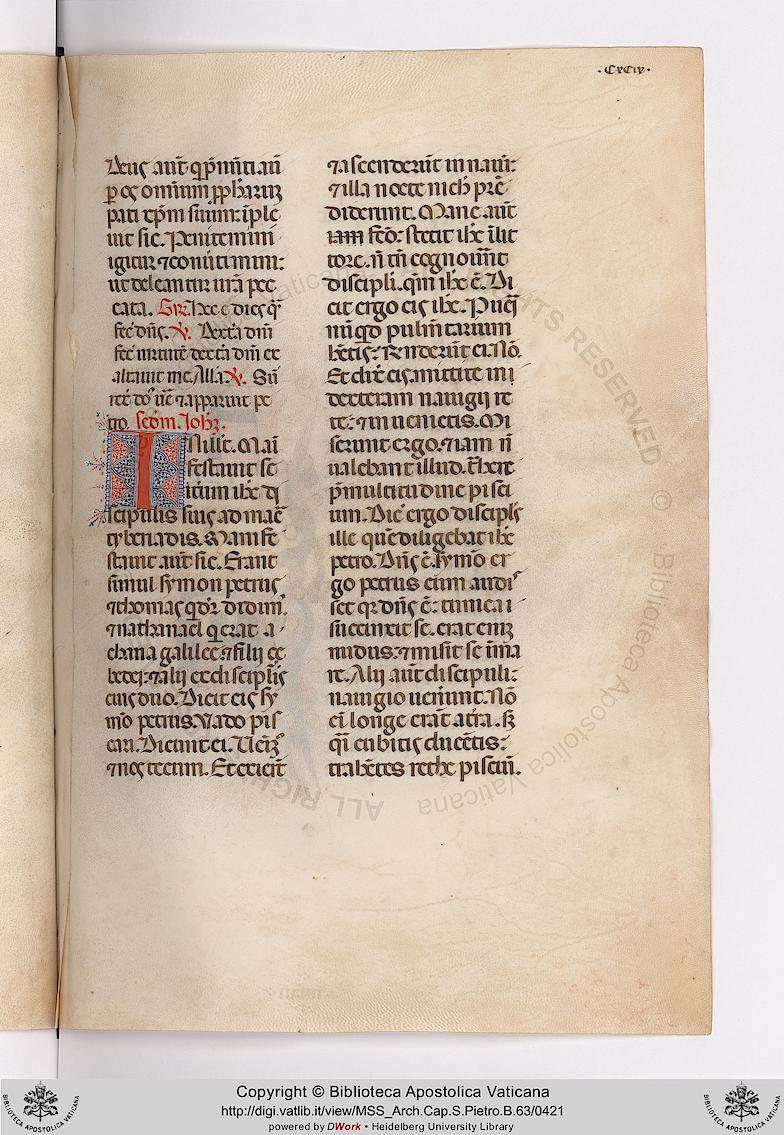 ·CXCIV·
Deus aut̄ q̄ p̄nūtiaū
ꝑ os omnium ꝓpharuꝫ
pati xp̄m suum: īple
uit sic. Penitemini
igitur ⁊ conūtimini:
ut deleantur ur̄a pec
cata. Gr̄. Hec ē dies q̄
fec̄ dn̄s. ℣. Dext̓a dn̄i
fec̄ uirtutē dext̓a dn̄i ex
altauit me. Alla ℣. Sur
rex̄ dn̄s ūe ⁊ apparuit pe
tro. scdm. Joh̄ꝫ.
IN illo t̄. Mani
festauit se
iterum ih̄c di
scipulis suis ad mare
tyberiadis. Manife
stauit aut̄ sic. Erant
simul symon petrus
⁊ thomas q̄ dr̄ didim̄.
⁊ nathanael q̄ erat a
chana galilee ⁊ filij ze
bedei: ⁊ alij ex discipul̄is
eius duo. Dicit eis sy
mō petrus. Vado pis
cari. Dicunt ei. Uenim̄
⁊ nos tecum. Et exierūt
⁊ ascenderūt in nauī:
⁊ illa nocte nich̄ prē
diderunt. Mane aut̄
iam fcō: stetit ih̄c ī lit
tore. n̄ tn̄ cognouer̄t
discipli. qm̄ ih̄c ē. Di
cit ergo eis ih̄c. Pueri
nūqd pulmentarium
h̄etis: Rn̄derūt ei. Nō.
Et dix̄ eis. mittite in
dexteram nauigij re
te: ⁊ inuenietis. Mi
serunt ergo. ⁊ iam n̄
ualebant illud. t̄here
p̄ multitudine pisci
um. Dic̄ ergo discipls̄
ille quē diligebat ih̄c
petro. Dn̄s ē. Symō er
go petrus cum audis
set qr dn̄s ē: tunica
succinxit se. erat eniꝫ
nudus: ⁊ misit se ī ma
re. Alij aut̄ discipuli:
nauigio uenerunt. Nō
eī longe erāt a t̄ra. sꝫ
q̄i cubitis ducētis:
trahētes rethe pisciū.
Copyright © Biblioteca Apostolica Vaticana
http://digi.vatlib.it/view/MSS_Arch.Cap.S.Pietro.B.63/0421
powered by DWork • Heidelberg University Library
BIBLIOTECA APOSTOLICA VATICANA
BIBLIOTECA APOSTOLICA VATICANA
ALL RIGHTS RESERVED © Biblioteca Apostolica Vaticana